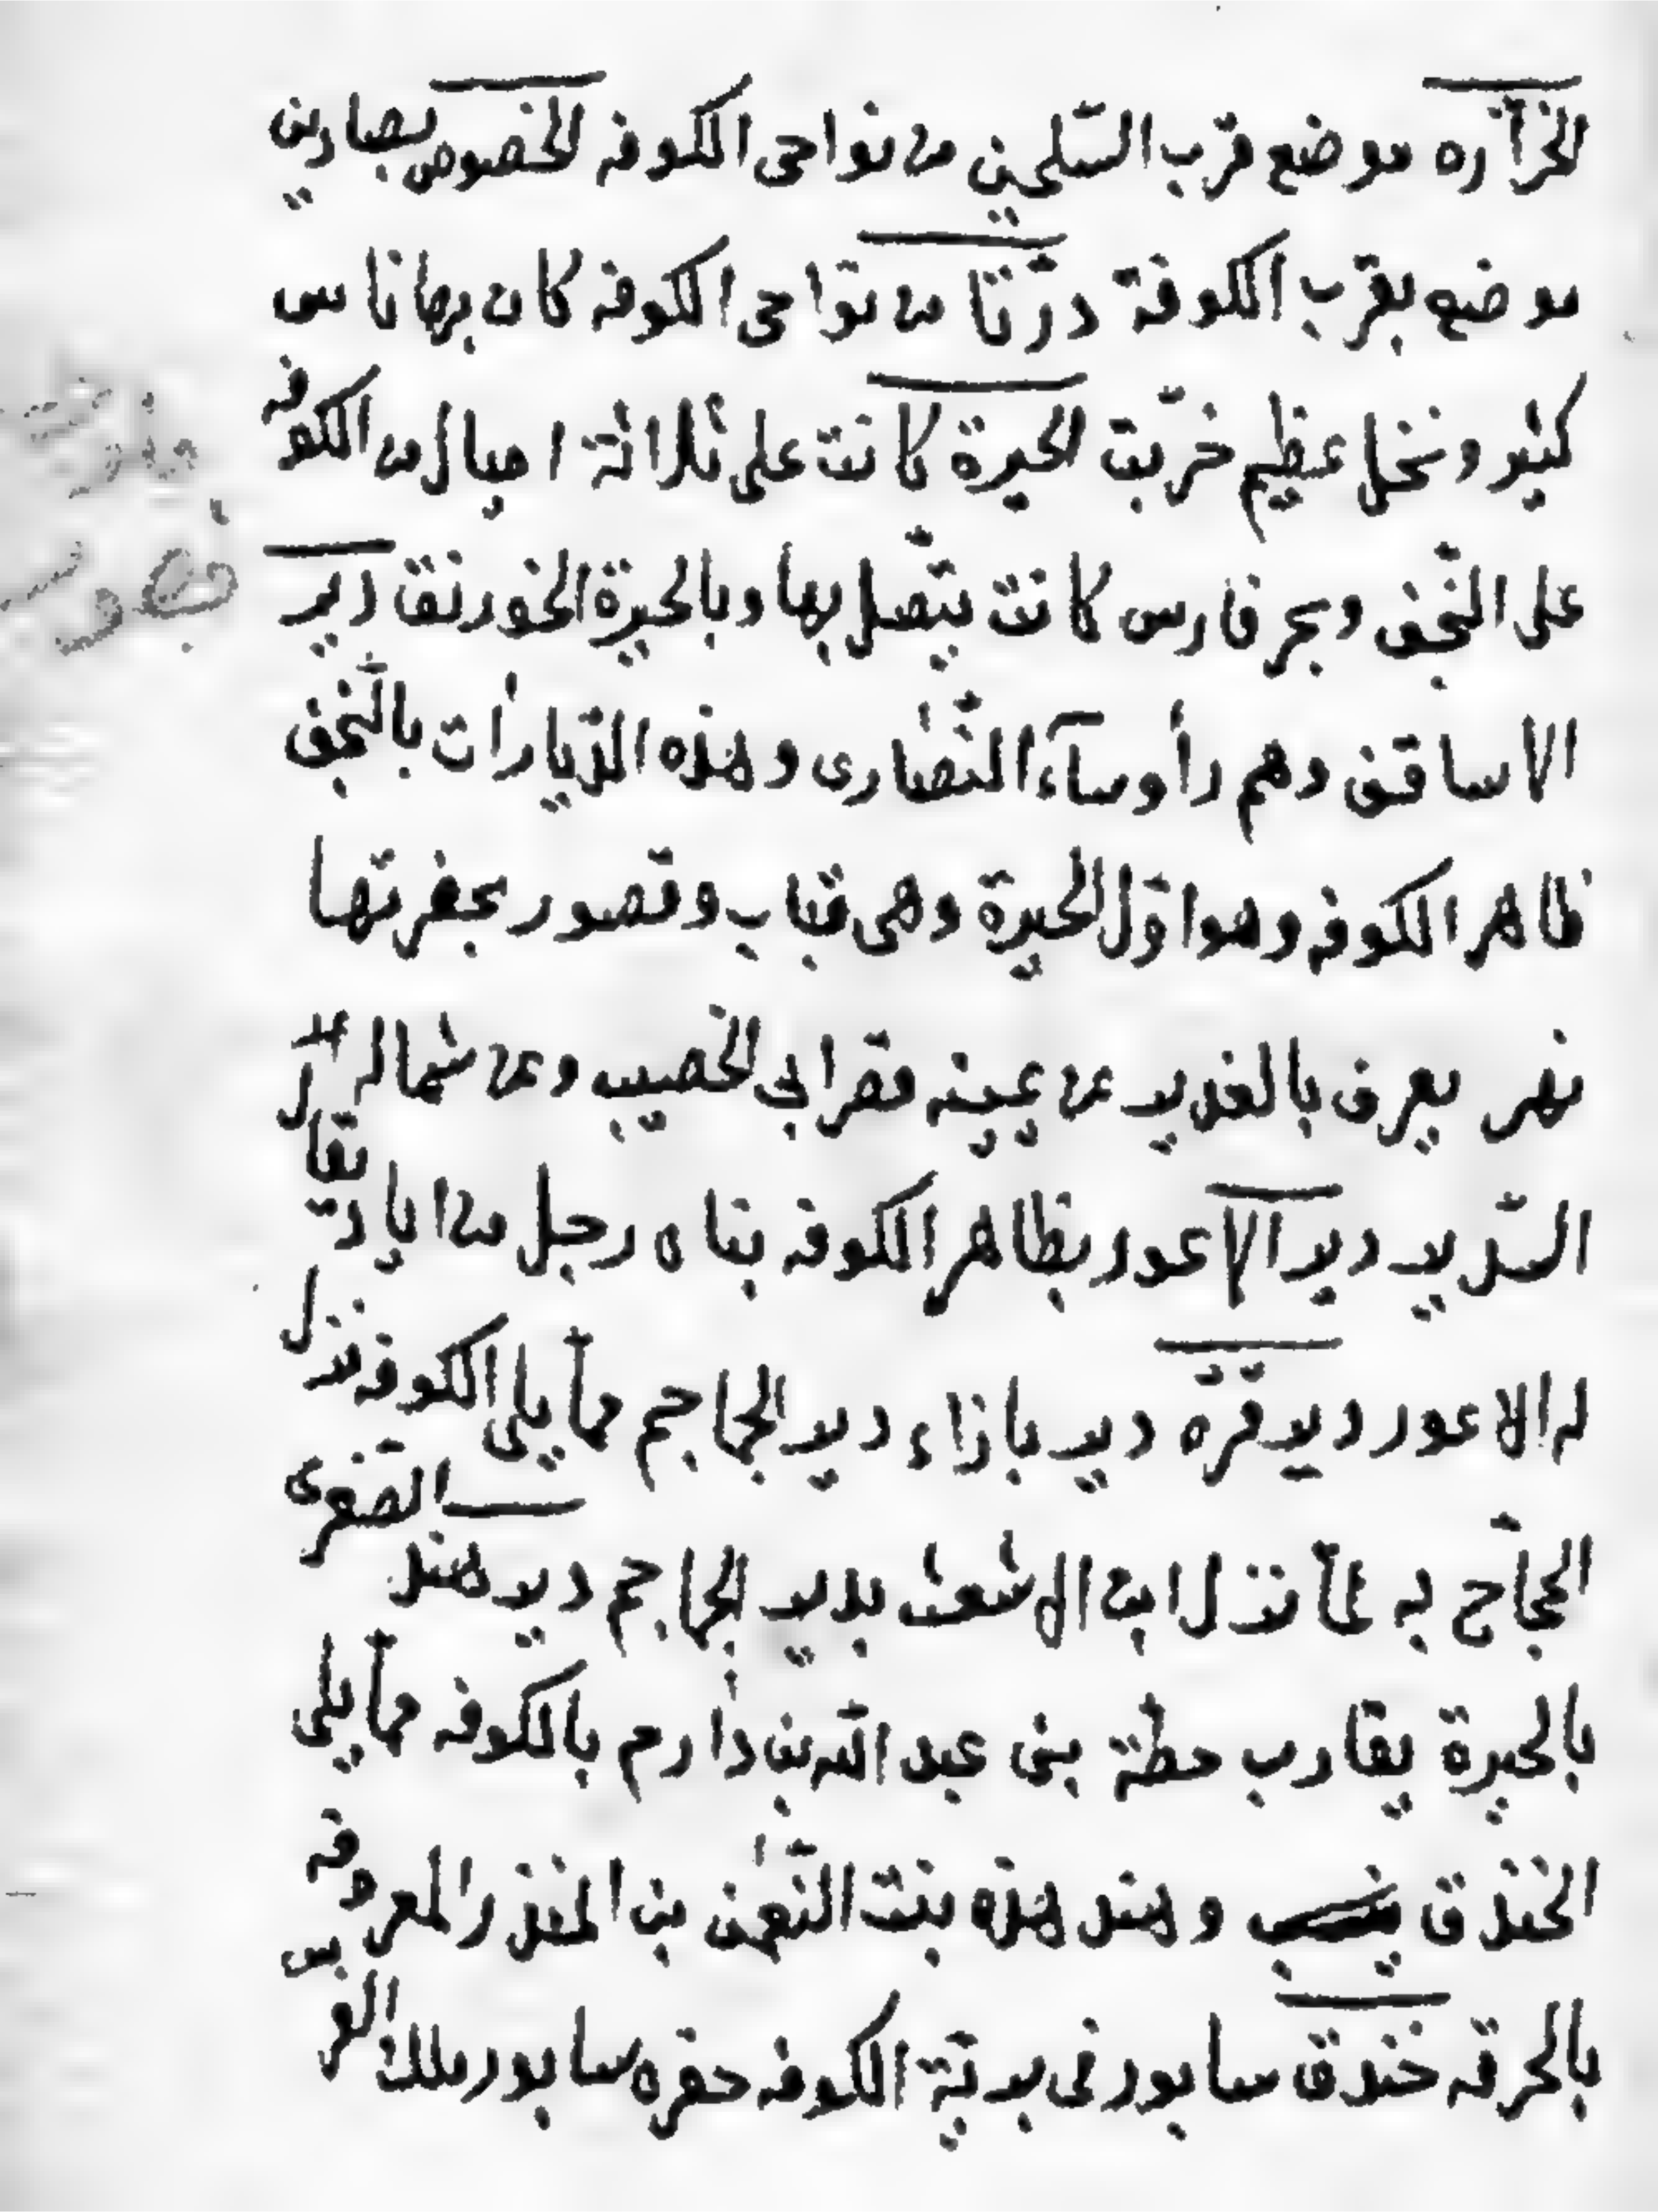 الخرّاره موضع قرب السّيلحين من نواحى الكوفه الخصوص بصادين
موضع بقرب الكوفة درتا من نواحى الكوفه كان بها ناس
كثير ونخل عظيم خرّبت الحيرة كانت على ثلاثة اميال من الكوفه
على النّجف وبحر فارس كانت يتّصل بها وبالحيرة الخورنق دير
الاساقف وهم رأوسآء النّصارى وهذه الدّيارات بالنّجف
ظاهر الكوفه وهو اوّل الحيرة وهى قباب وقصور بحفرتها
نهر يعرف بالغدير عن يمينه قصر ابى الخصيب وعن شماله
السّدير دير الاعور بظاهر الكوفه بناه رجل من اياد يقال
له الاعور دير قرّه دير بازاء دير الجماجم ممّا يلى الكوفه نزل
الحجّاج به لمّا نزل ابن الاشعث بدير الجماجم دير هند الصّغرى
بالحيرة يقارب خطّة بنى عبد الله بن دارم بالكوفه ممّا يلى
الخندق وهند هذه بنت النّعمن بن المنذر المعروفه
بالحرقه خندق سابور فى برية الكوفه حفره سابور ملك الفرس